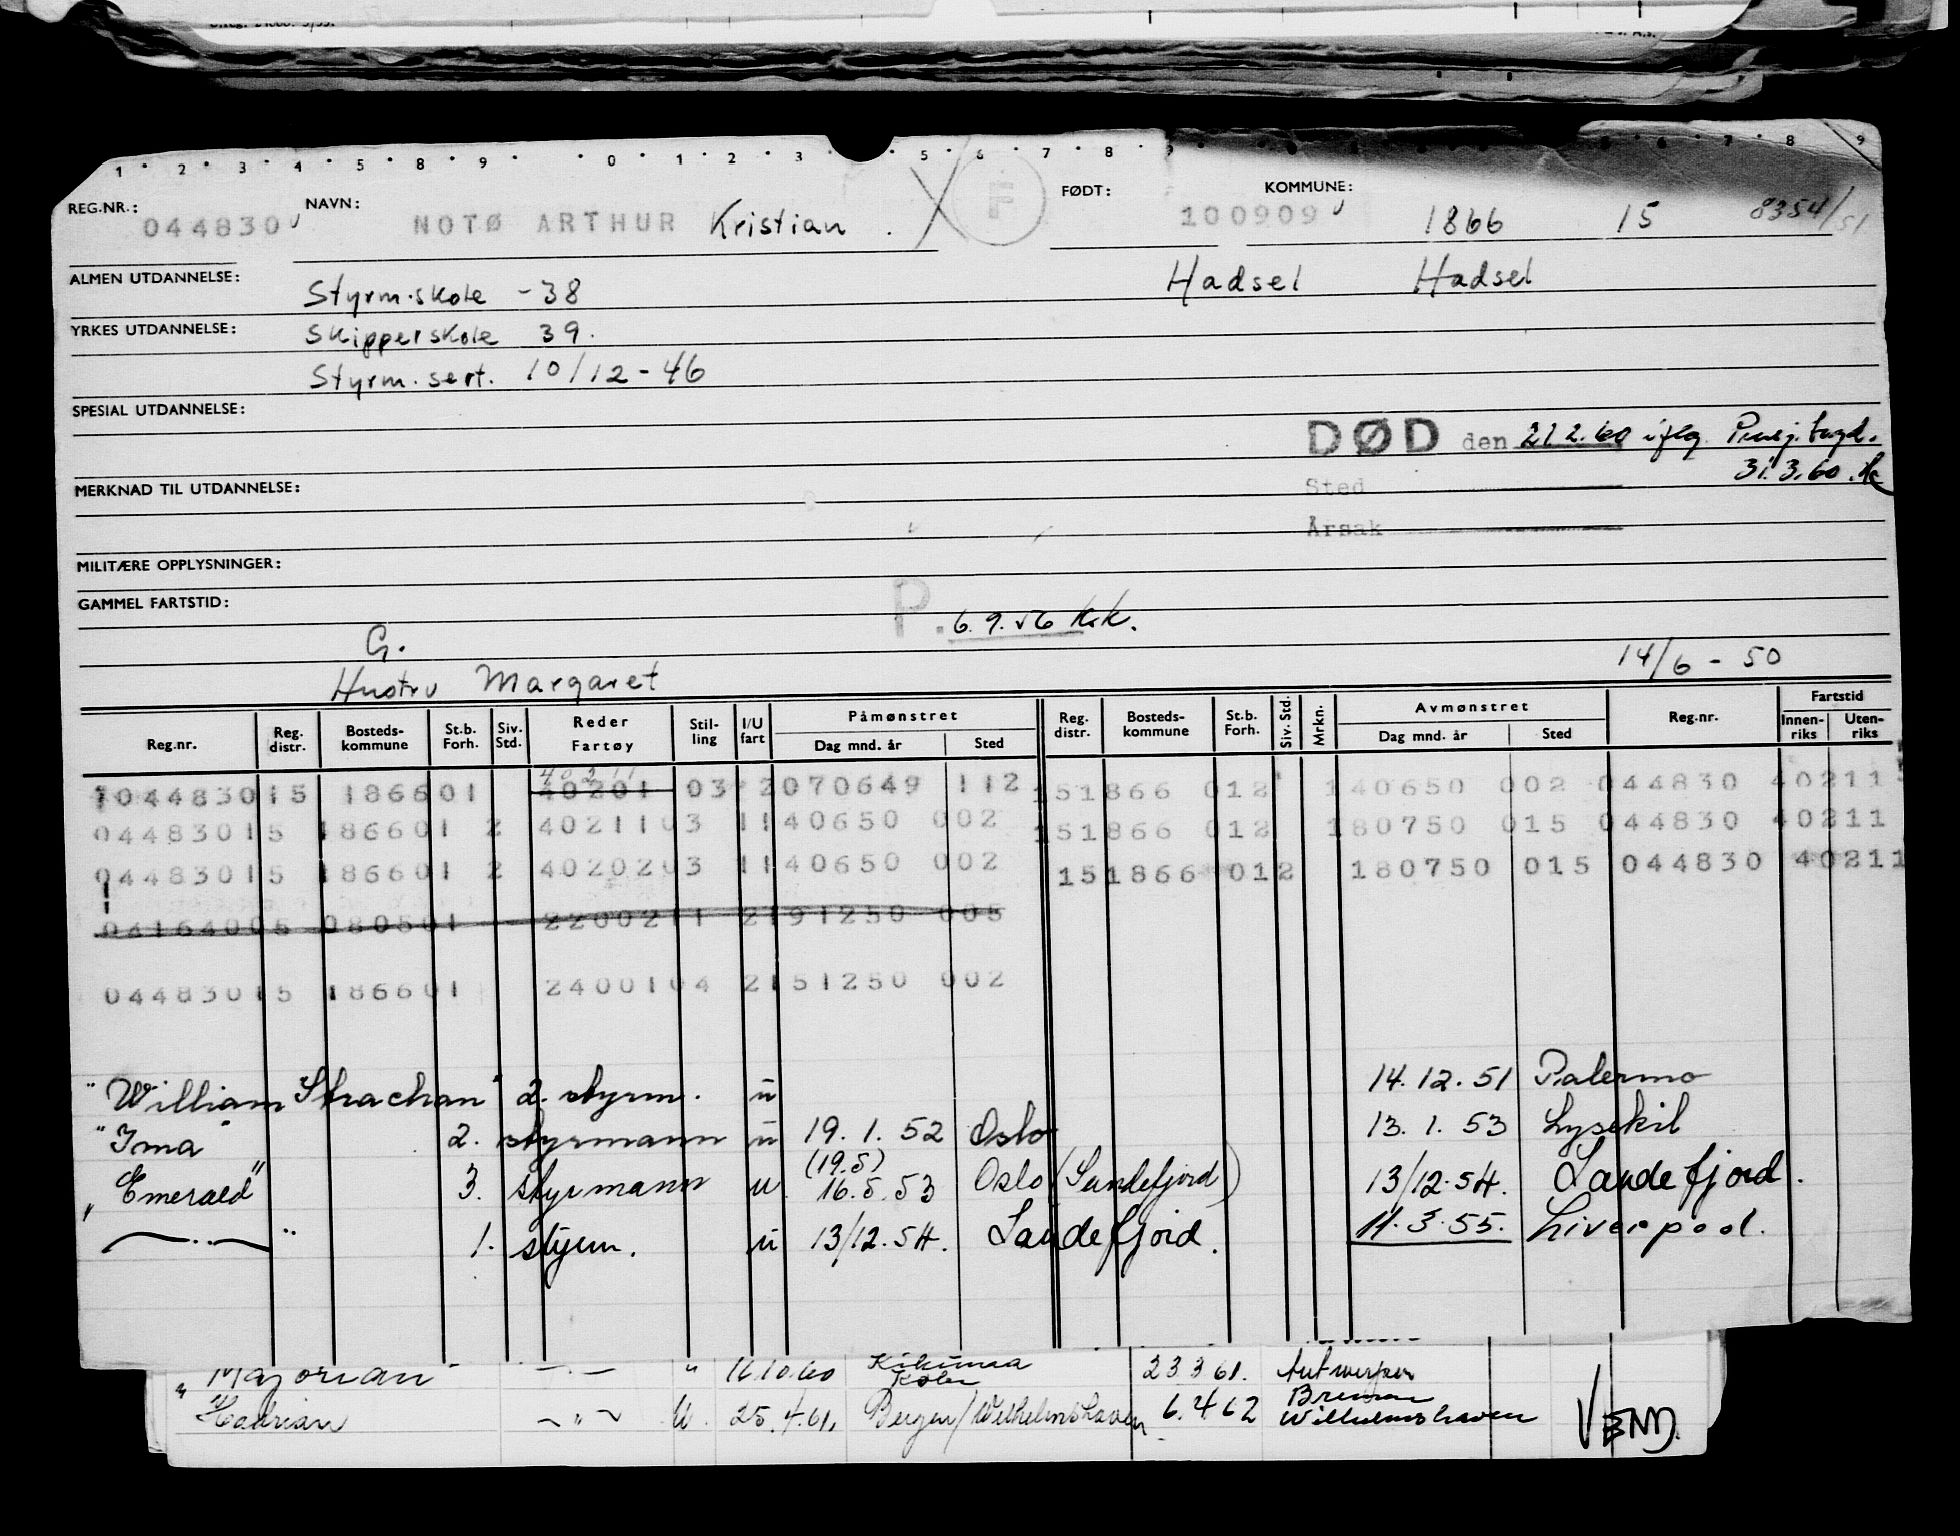 1 · 2 · 3 · 4 · 5 · 8 · 9 · · 0 · 1 2 · 3 · 5 · 6 · 7 · 8 · 6 7 8 9
REG.NR.: NAVN: FØDT: KOMMUNE:
044830 NOTØ ARTHUR Kristian . F 100909 1866 15 8354/51
ALMEN UTDANNELSE: Styrm.skole - 38 Hadsel Hadsel
YRKES UTDANNELSE: Skipperskole 39.
Styrm. sert. 10/12 - 46
SPESIAL UTDANNELSE:
DØD den 21.2.60 iflg.
31.3.60.
MERKNAD TIL UTDANNELSE: Sted
Årsak
MILITÆRE OPPLYSNINGER:
GAMMEL FARTSTID:
P. 6.9.56 Kk.
G.
Hustru Margaret 14/6 - 50
Reg.nr. Reg. distr. Bosteds-kommune St.b. Forh. Siv. Std. Reder Fartøy Stil-ling I/U fart Påmønstret Dag mnd. år Sted Reg. distr. Bosteds-kommune St.b. Forh. Siv. Std. Mrkn. Avmønstret Dag mnd. år Sted Reg.nr. Fartstid Innen-riks Uten-riks
40211
104483015 186601 40201 03 2070649 112 151866 012 140650 002 044830 40211
04483015 186601 2 4021103 1140650 002 151866 012 180750 015 044830 40211
04483015 186601 2 4020203 1140650 002 151866 012 180750 015 044830 40211
05 080501 2200211 2191250 005
04483015 186601 2400104 2151250 002
"William Strachan" 2. styrm. u 14.12.51 Palermo
"Ima" 2. styrmann u 19.1.52 Oslo 13.1.53 Lysekil
(19.5)
"Emerald" 3. styrmann u 16.5.53 Oslo (Sandefjord) 13/12.54. Sandefjord.
—..— " 1. styrm. u 13/12.54. Sandefjord. 11.3.55. Liverpool.
"Majorian" —.— " 23 3 61. Antwerpen
"Hadrian ~"~ U. 25.4.61. Bergen/Wilhelmshaven 6.4 62 Bremen
Wilhelmshaven
VEND.